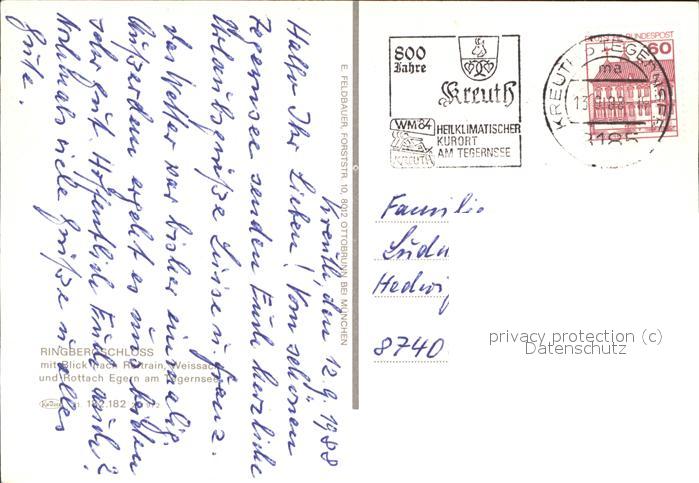 Kreuth, den 12.9.1988
Hallo Ihr Lieben! Vom schönen
Tegernsee senden Euch herzliche
Urlaubsgrüße Luise u. Franz.
Das Wetter war bisher einmalig.
Außerdem ergeht es uns beiden
sehr gut. Hoffentlich Euch auch?
Nochmals viele Grüße u. alles
Gute.
RINGBERGSCHLOSS
mit Blick nach Reitrain, Weissach
und Rottach Egern am Tegernsee
182.182
E. FELDBAUER, FORSTSTR. 10, 8012 OTTOBRUNN BEI MÜNCHEN
800
Jahre
Kreuth
WM 84
KREUTH
HEILKLIMATISCHER
KURORT
AM TEGERNSEE
DEUTSCHE BUNDESPOST
60
KREUTH TEGERNSEE
ma
8185
Familie
Hedwig
8740
privacy protection (c)
Datenschutz